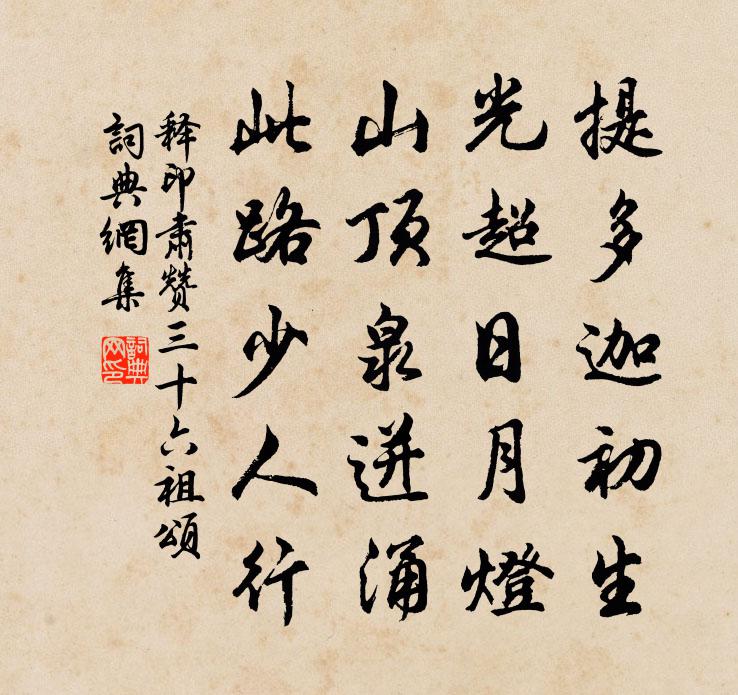 提多迦初生
光超日月燈
山頂泉迸涌
此路少人行
释印肅赞三十六祖頌
詞典網集
詞典網印